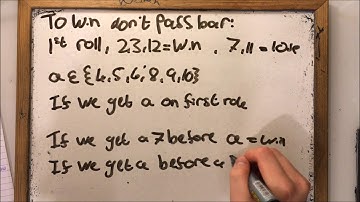 To Win don't pass bar:
1st roll, 2,3,12=Win, 7,11=lose
a∈{4,5,6,8,9,10}
If we get a on first role
If we get a 7 before a = win
If we get a before a